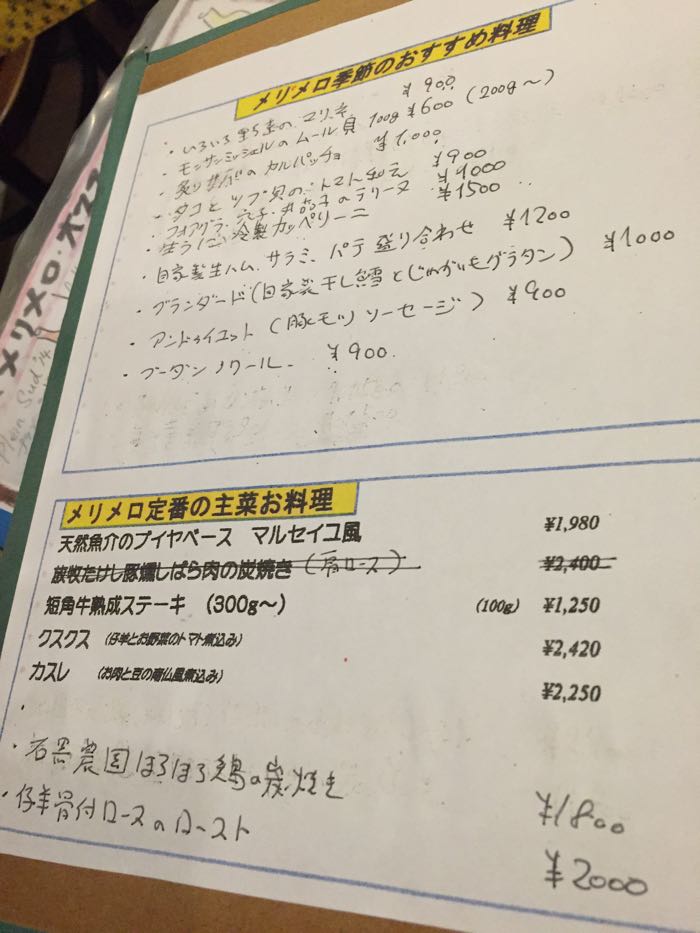 メリメロ季節のおすすめ料理
・いろいろ野菜のマリネ ¥900
・モンサンミッシェルのムール貝 100g ¥600 (200g〜)
・炙り のカルパッチョ ¥1,000
・タコとツブ貝のトマト和え ¥900
・フォアグラ、穴子、 のテリーヌ ¥1000
・生うに 冷製カッペリーニ ¥1500
・自家製生ハム、サラミ、パテ盛り合わせ ¥1200
・ブランダード(自家製干し鱈とじゃがいもグラタン) ¥1000
・アンドゥイエット (豚モツソーセージ) ¥900
・ブーダンノワール ¥900
メリメロ定番の主菜お料理
天然魚介のブイヤベース マルセイユ風 ¥1,980
放牧たけし豚 しばら肉の炭焼き (肩ロース) ¥2,400
短角牛熟成ステーキ (300g〜) (100g) ¥1,250
クスクス (仔羊とお野菜のトマト煮込み) ¥2,420
カスレ (お肉と豆の南仏風煮込み) ¥2,250
・石黒農園ほろほろ鶏の炭焼き ¥1800
・仔羊骨付ロースのロースト ¥2000
メリメロ・
Plein Sud '14